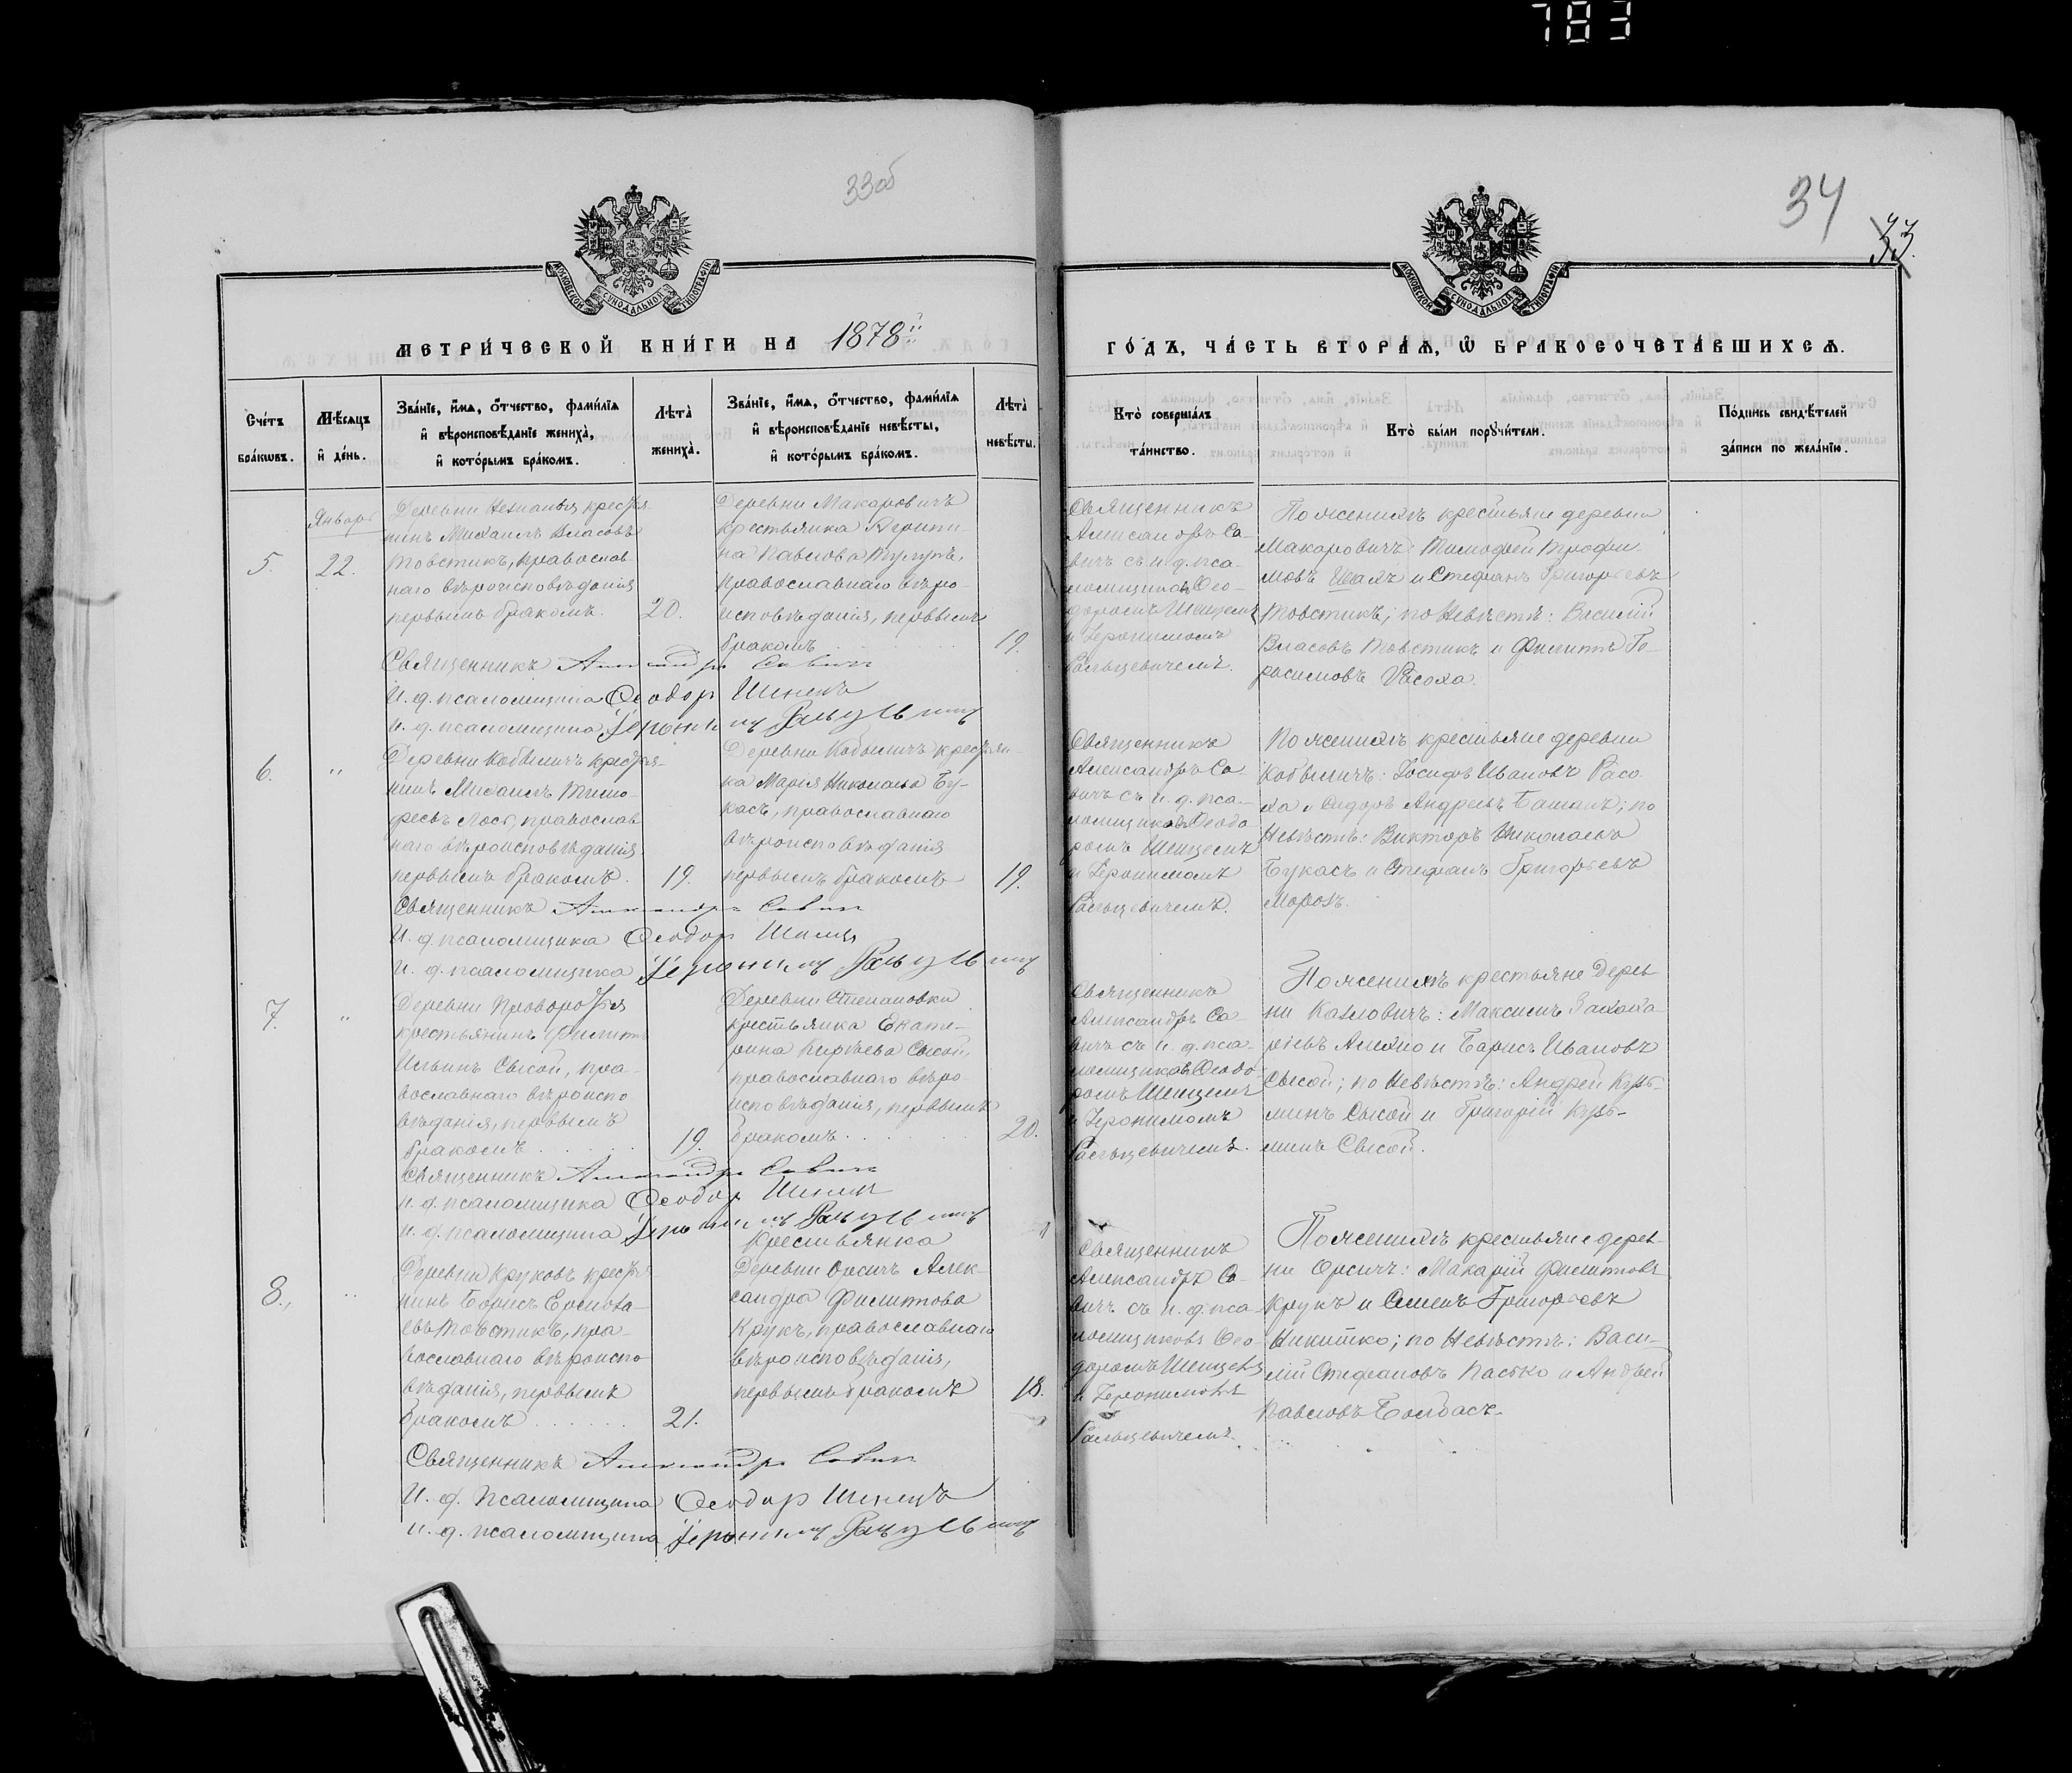 783
33об
34
33.
МОСКОВСКОЙ СѴНОДАЛЬНОЙ ТИПОГРАФІИ
МОСКОВСКОЙ СѴНОДАЛЬНОЙ ТИПОГРАФІИ
МЕТРИ́ЧЕСКОЙ КНИ́ГИ НА 1878й
ГО́ДЪ, ЧА́СТЬ ВТОРА́Ѧ, Ѡ҆ БРАКОСОЧЕТА́ВШИХСѦ.
Сче́тъ
бра́кѡвъ.
Мѣ́сѧцъ
и҆ де́нь.
Зва́нїе, и҆́мѧ, ѻ҆́тчество, фами́лїѧ
и҆ вѣроисповѣ́данїе жениха̀,
и҆ кото́рымъ бра́комъ.
Лѣ́та̀
жениха̀.
Зва́нїе, и҆́мѧ, ѻ҆́тчество, фами́лїѧ
и҆ вѣроисповѣ́данїе невѣ́сты,
и҆ кото́рымъ бра́комъ.
Лѣ́та̀
невѣ́сты.
Кто̀ соверша́лъ
та́инство.
Кто̀ бы́ли порꙋчи́тели.
По́дпись свидѣ́телей
за́писи по жела́нїю.
Январь
5.
22.
нинъ Михаилъ Власовъ
Товстикъ, православ-
наго вѣроисповѣданія
первымъ бракомъ.
20.
Деревни Макаровичъ
крестьянка Агрипи-
на Павлова
православнаго вѣро-
исповѣданія, первымъ
бракомъ
19.
Священникъ
Александръ Са-
вичъ съ и. д. пса-
ломщиковъ Ѳео-
доромъ Шенцемъ
и Іеронимомъ
Ральцевичемъ.
По женихѣ крестьяне деревни
Макаровичъ: Тимофей Трофи-
мовъ и Стефанъ Григорьевъ
Товстикъ; по невѣстѣ: Василій
Власовъ Товстикъ и Филиппъ Ге-
расимовъ Расоха.
Священникъ Александръ Савичъ
И. д. псаломщика Ѳеодоръ Шенецъ
И. д. псаломщика Іеронимъ Ральцевичъ
6.
"
Деревни Кобыличъ крестья-
нинъ Михаилъ Тимо-
феевъ Лось, православ
наго вѣроисповѣданія
первымъ бракомъ.
19.
Деревни Кобыличъ крестьян-
ка Марія Николаева Бу-
касъ, православнаго
вѣроисповѣданія
первымъ бракомъ
19.
Священникъ
Александръ Са-
вичъ съ и. д. пса-
ломщиковъ Ѳеодо
ромъ Шенцемъ
и Іеронимомъ
Ральцевичемъ.
По женихѣ крестьяне деревни
Кобыличъ: Іосифъ Ивановъ Расо-
ха и Сидоръ Андреевъ Башанъ; по
невѣстѣ: Викторъ Николаевъ
Букасъ и Стефанъ Григорьевъ
Морозъ.
Священникъ Александръ Савичъ
И. д. псаломщика Ѳеодоръ Шенецъ
И. д. псаломщика Іеронимъ Ральцевичъ
7.
"
Деревни
крестьянинъ Филиппъ
Ильинъ Сысой, пра-
вославнаго вѣроиспо
вѣданія, первымъ
бракомъ
19.
Деревни Степановки
крестьянка Екате-
рина Сысой,
православнаго вѣро
исповѣданія, первымъ
бракомъ
20.
Священникъ
Александръ Са-
вичъ съ и. д. пса-
ломщиковъ Ѳеодо-
ромъ Шенцемъ
и Іеронимомъ
Ральцевичемъ.
По женихѣ крестьяне дерев-
ни Казловичъ: Максимъ
Алехно и Барисъ Ивановъ
Сысой; по невѣстѣ: Андрей Кузь-
минъ Сысой и Григорій Кузь-
минъ Сысой.
Священникъ Александръ Савичъ
И. д. псаломщика Ѳеодоръ Шенецъ
И. д. псаломщика Іеронимъ Ральцевичъ
8.
"
Деревни Круковъ крестья
нинъ Борисъ
Товстикъ, пра-
вославнаго вѣроиспо
вѣданія, первымъ
бракомъ
21.
Крестьянка
Деревни Орсичъ Алек-
сандра Филиппова
Крукъ, православнаго
вѣроисповѣданія,
первымъ бракомъ
18.
Священникъ
Александръ Са-
вичъ съ и. д. пса-
ломщиковъ Ѳео-
доромъ Шенцемъ
и Іеронимомъ
Ральцевичемъ
По женихѣ крестьяне дерев-
ни Орсичъ: Макарій Филипповъ
Крукъ и Семенъ Григорьевъ
Никитко; по невѣстѣ: Васи-
лій Стефановъ Пастко и Андрей
Павловъ Болбасъ.
Священникъ Александръ Савичъ
И. д. псаломщика Ѳеодоръ Шенецъ
И. д. псаломщика Іеронимъ Ральцевичъ